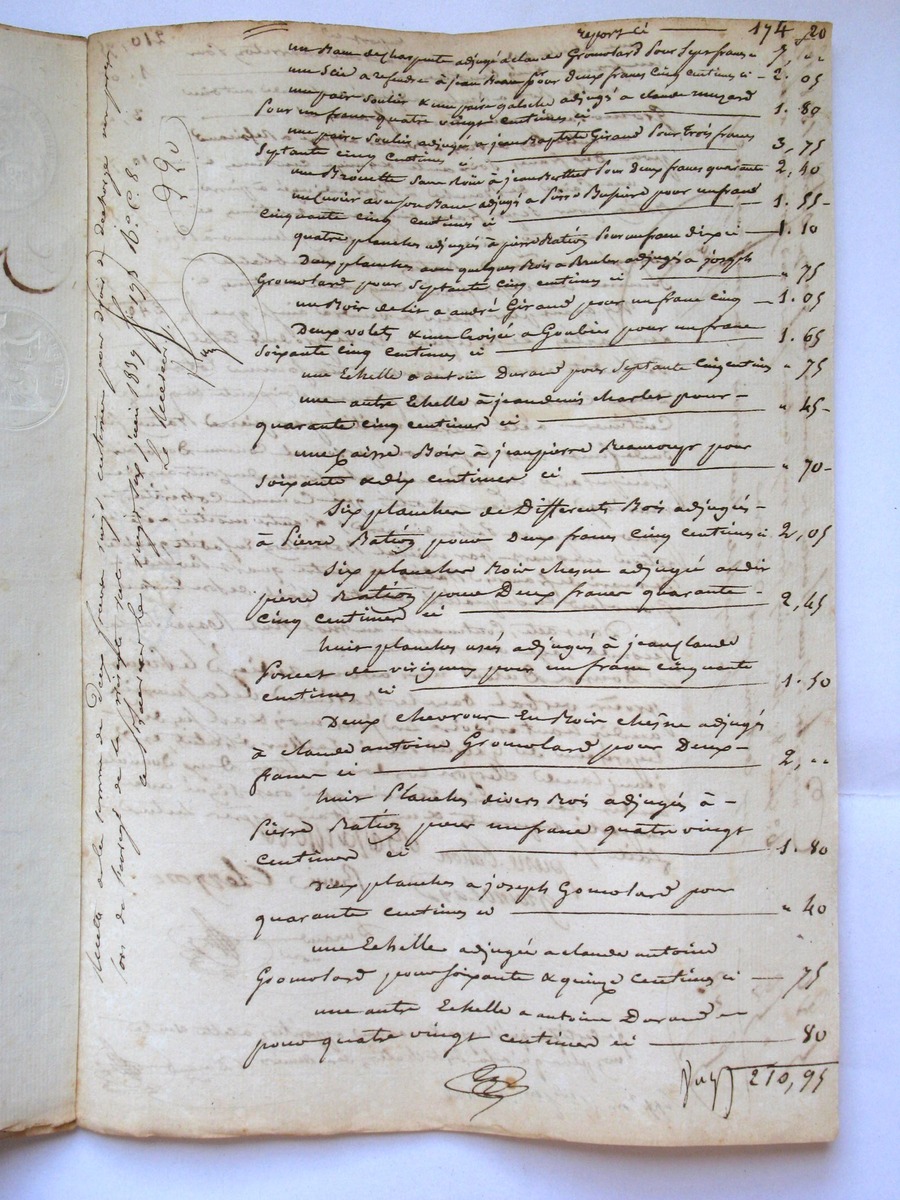 report ci 174 20
un Banc de charpente adjugé a claude Gromolard Pour Sept francs 7, "
une Scie a refendre à jean Beau pour Deux francs Cinq Centimes ci 2. 05
une pair Soulier & une paire galoche adjugés a claude
Pour un franc quatre vingt Centimes ci 1. 80
une paire Soulier adjugés a jean Baptiste Giraud Pour trois francs
Septante cinq Centimes ci 3, 75
une Brouette Sans à jean Berthet Pour Deux francs quarante 2, 40
un Cuvier avec son Banc adjugé a Pierre pour un franc
Cinquante cinq Centimes ci 1. 55
quatre planches adjugées à pierre Ratiéz Pour un franc dix ci 1. 10
Deux planches avec quelques Bois à Bruler adjugés à joseph
Gromolard pour Septante Cinq centimes ci " 75
un Bois de lit a andré Giraud pour un franc cinq 1. 05
Deux volets & une Croisée a Goubier pour un franc
Soixante Cinq Centimes ci 1. 65
une Echelle a antoine Durand pour Septante Cinq centimes " 75
une autre Echelle à jean denis charlet pour
quarante Cinq Centimes ci " 45
une Caisse Bois à jean pierre pour
Soixante & dix centimes ci " 70
Six planches de Differents Bois adjugés
à Pierre Ratiéz pour Deux francs Cinq Centimes ci 2, 05
Six planches Bois chesne adjugés audit
pierre Ratiéz pour Deux francs quarante
Cinq Centimes ci 2, 45
huit planches usés adjugés à jean Claude
Poncet de pour un franc cinquante
Centimes ci 1. 50
Deux chevrons En Bois chêsne adjugés
à claude antoine Gromolard pour Deux
francs ci 2, "
huit Planches divers Bois adjugés à
Pierre Ratiéz pour un franc quatre vingt
Centimes ci 1. 80
Deux planches à joseph Gomolard pour
quarante Centimes ci " 40
une Echelle adjugée a claude antoine
Gromolard pour Soixante & quinze Centimes ci 75
une autre Echelle a antoine Durand
pour quatre vingt Centimes ci 80
210, 95
la somme de Deux francs vingt centimes pour droit de décharge
de la minute
le vingt six juin 1839 f° 175 R° C. 8
Le Receveur